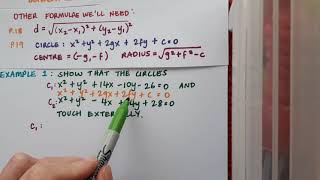 OTHER FORMULAE WE'LL NEED:
P.18 d = √(x₂-x₁)² + (y₂-y₁)²
P19 CIRCLE: x² + y² + 2gx + 2fy + c = 0
CENTRE = (-g, -f) RADIUS = √g² + f² - c
EXAMPLE 1: SHOW THAT THE CIRCLES
C₁: x² + y² + 14x - 10y - 26 = 0 AND
x² + y² + 2gx + 2fy + c = 0
C₂: x² + y² - 4x + 14y + 28 = 0
TOUCH EXTERNALLY.
C₁: